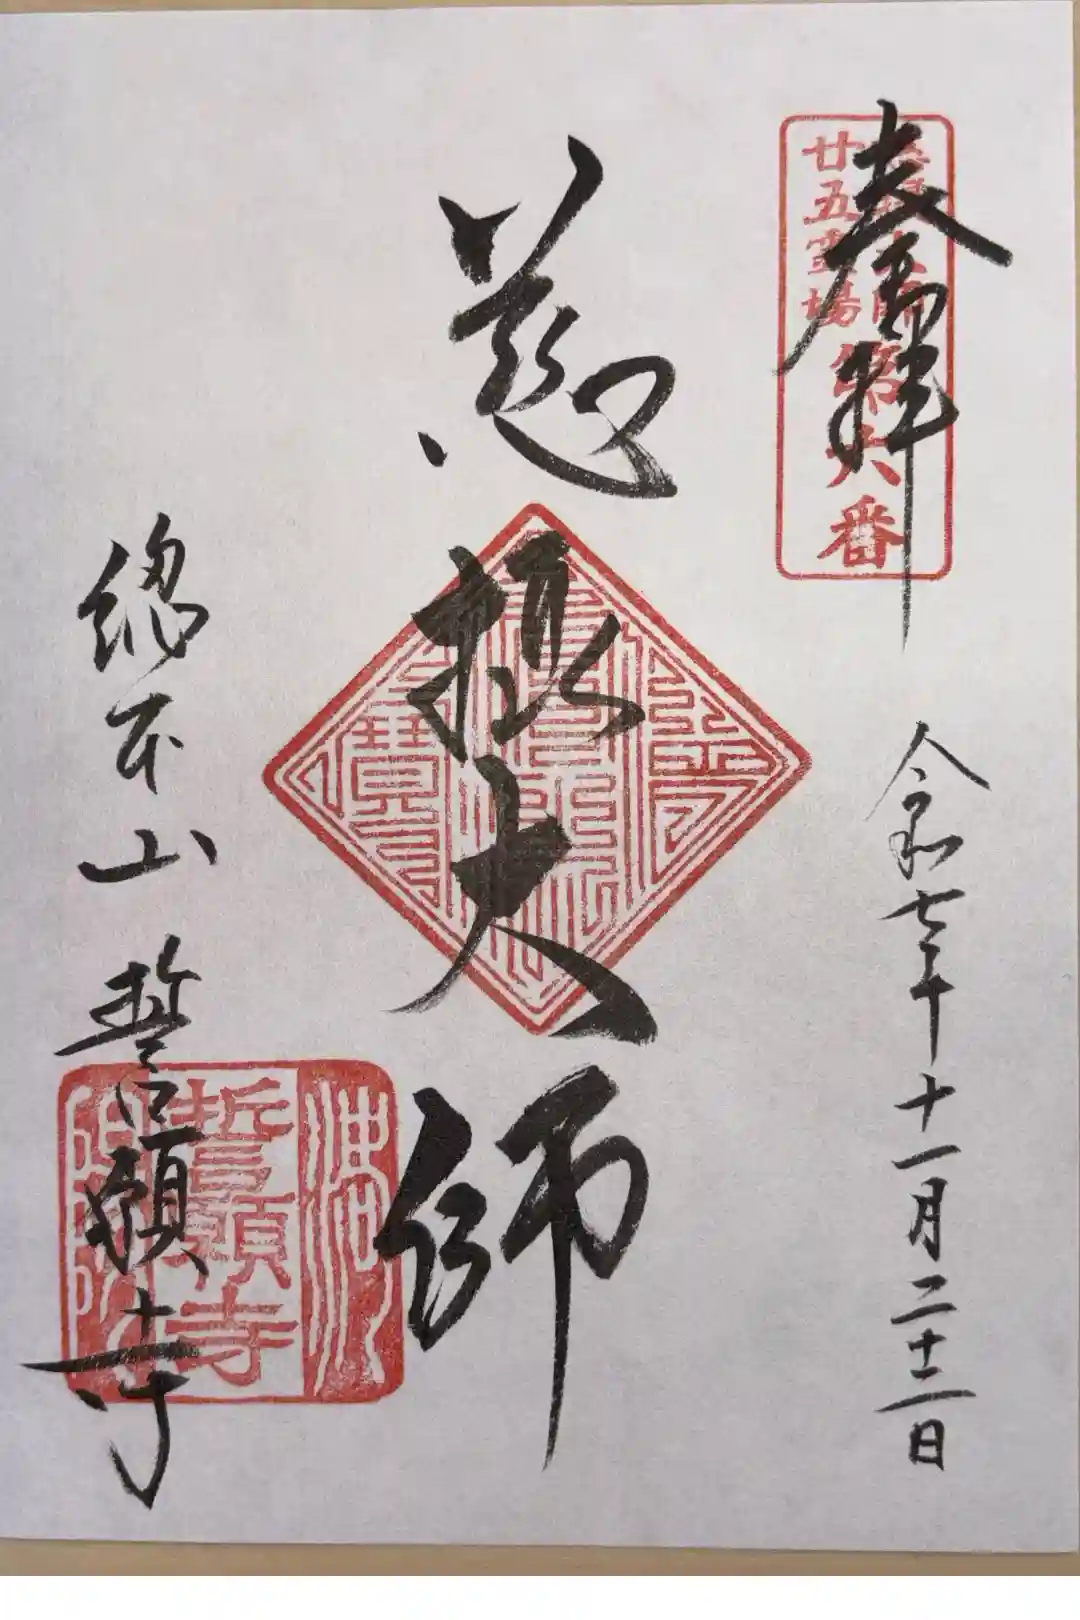 奉拝
慈攝大師
廿五霊場
第六番
令和七年十一月二十二日
慈摂大師
総本山誓願寺
誓願寺